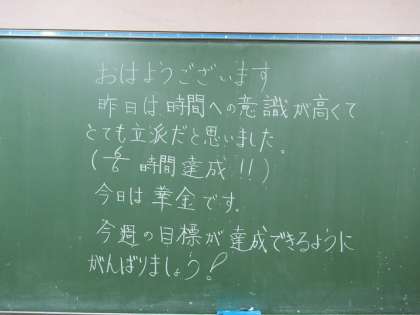 おはようございます
昨日は時間への意識が高くて
とても立派だと思いました。
(6/6 時間達成!!)
今日は華金です。
今週の目標が達成できるように
がんばりましょう!